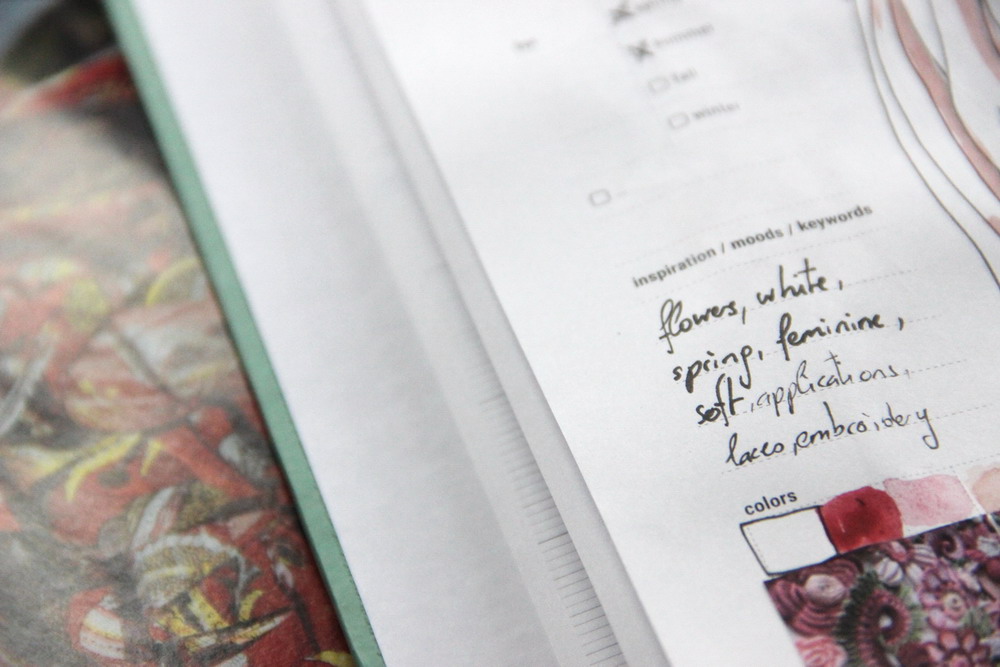 summer
fall
winter
inspiration / moods / keywords
flowers, white,
spring, feminine,
soft, applications,
laces, embroidery
colors